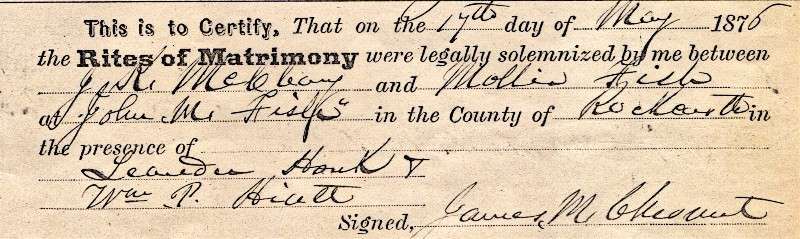 This is to Certify, That on the 17th day of May 1876
the Rites of Matrimony were legally solemnized by me between
J. K. McClary and Mollie Fish
at John M Fish's in the County of Rockcastle in
the presence of
Leander Houk &
Wm P. Hiatt
Signed, James M Chesnut